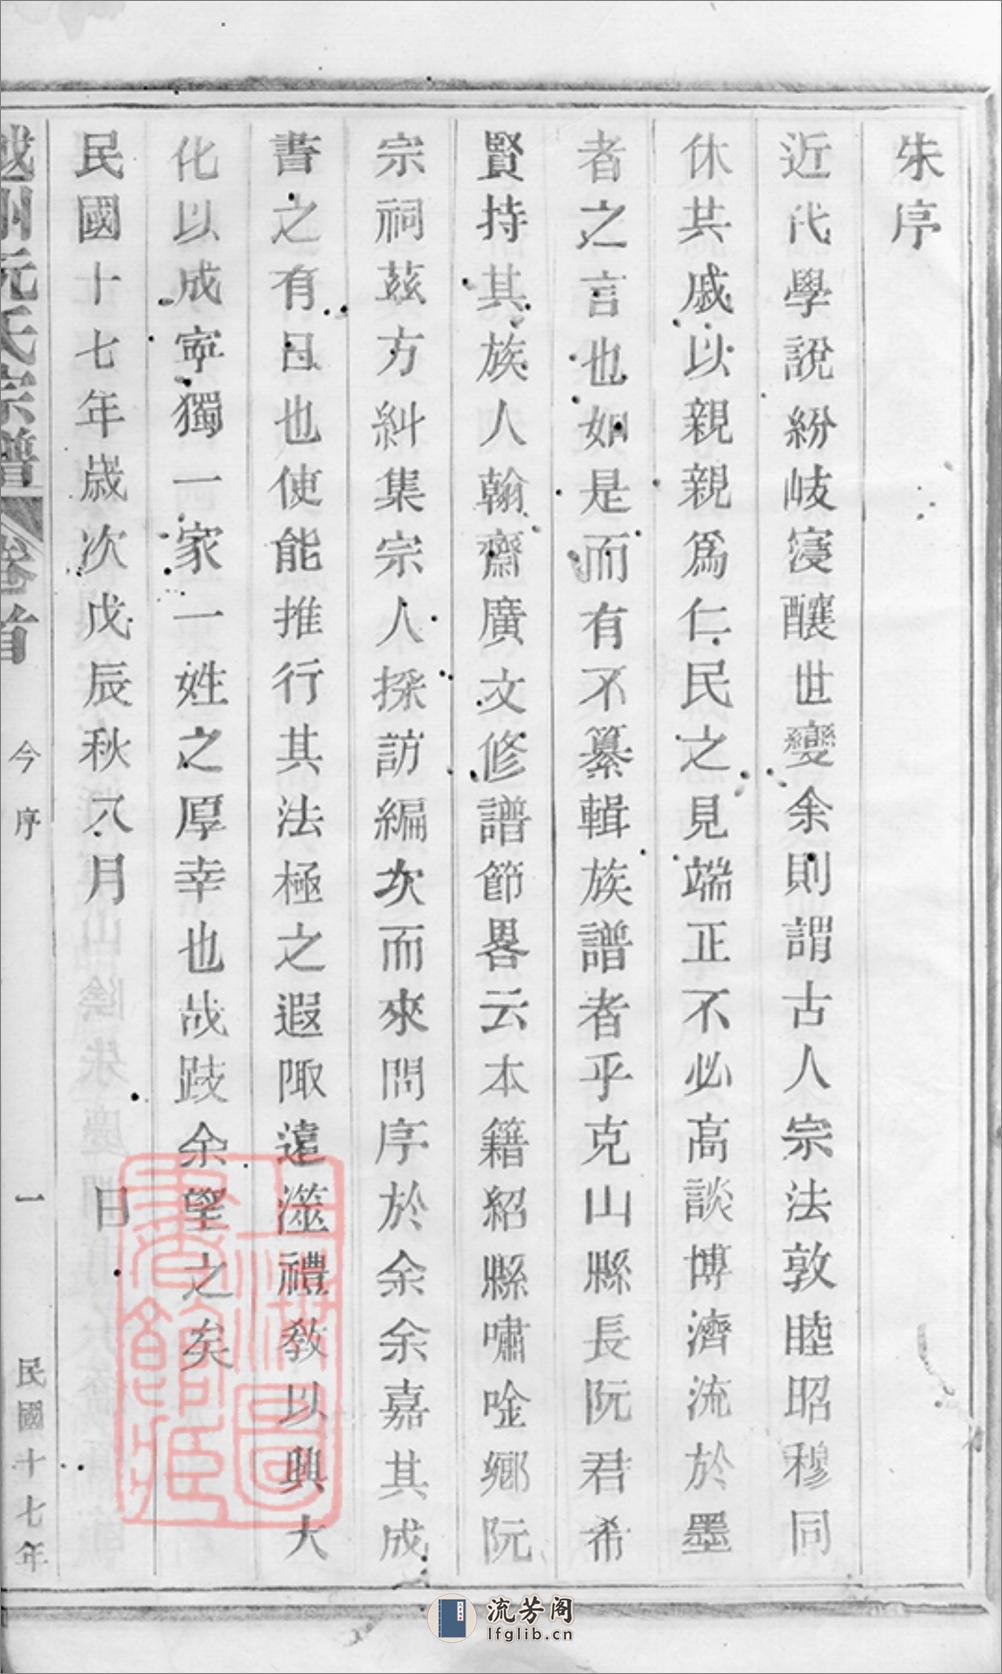 朱序
近代學說紛岐寖釀世變余則謂古人宗法敦睦昭穆同
休共戚以親親爲仁民之見端正不必高談博濟流於墨
者之言也如是而有不纂輯族譜者乎克山縣長阮君希
賢持其族人翰齋廣文修譜節畧云本籍紹縣嘯唫鄉阮
宗祠茲方糾集宗人採訪編次而來問序於余余嘉其成
書之有日也使能推行其法極之遐陬遠澨禮敎以興大
化以成寧獨一家一姓之厚幸也哉跂余望之矣
民國十七年歲次戊辰秋八月 日
越州阮氏宗譜 卷首 今序 一 民國十七年
流芳阁
lfglib.cn